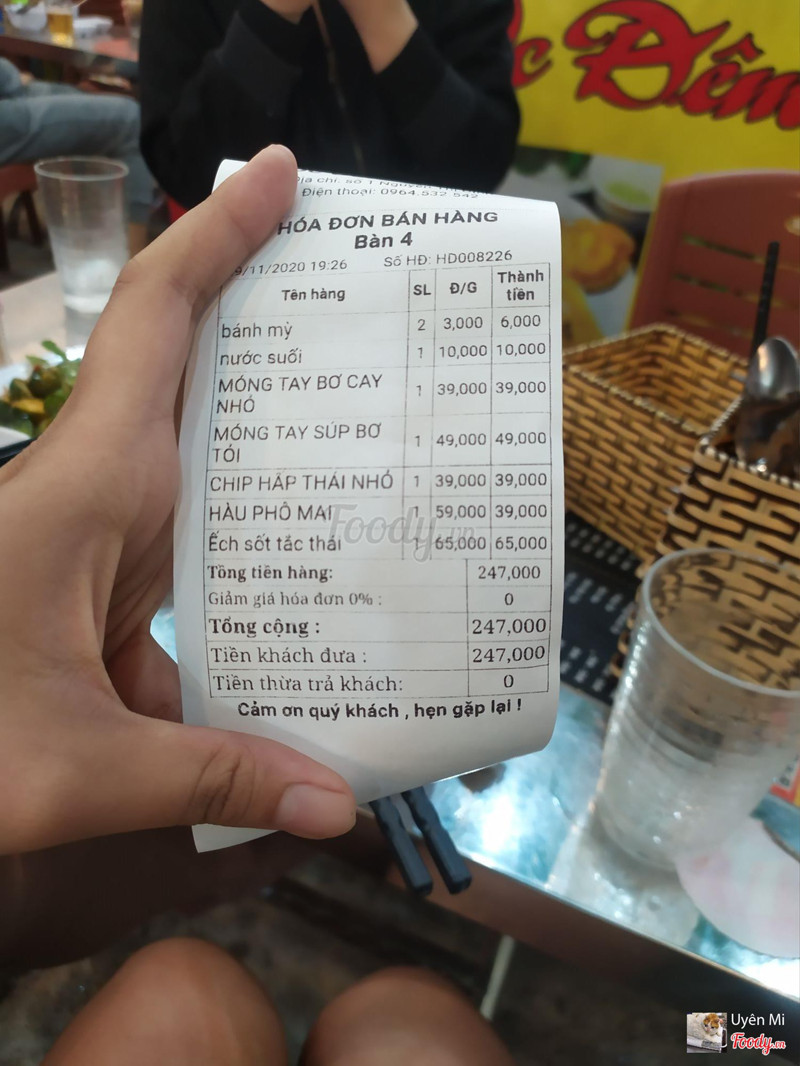 Đêm
Địa chỉ: số 1
Điện thoại: 0964.532.542
HÓA ĐƠN BÁN HÀNG
Bàn 4
9/11/2020 19:26 Số HĐ: HD008226
Tên hàng SL Đ/G Thành tiền
bánh mỳ 2 3,000 6,000
nước suối 1 10,000 10,000
MÓNG TAY BƠ CAY NHỎ 1 39,000 39,000
MÓNG TAY SÚP BƠ TỎI 1 49,000 49,000
CHIP HẤP THÁI NHỎ 1 39,000 39,000
HÀU PHÔ MAI 1 59,000 39,000
Ếch sốt tắc thái 1 65,000 65,000
Tổng tiền hàng: 247,000
Giảm giá hóa đơn 0% : 0
Tổng cộng : 247,000
Tiền khách đưa : 247,000
Tiền thừa trả khách: 0
Cảm ơn quý khách , hẹn gặp lại !
Foody.vn
Uyên Mi
Foody.vn